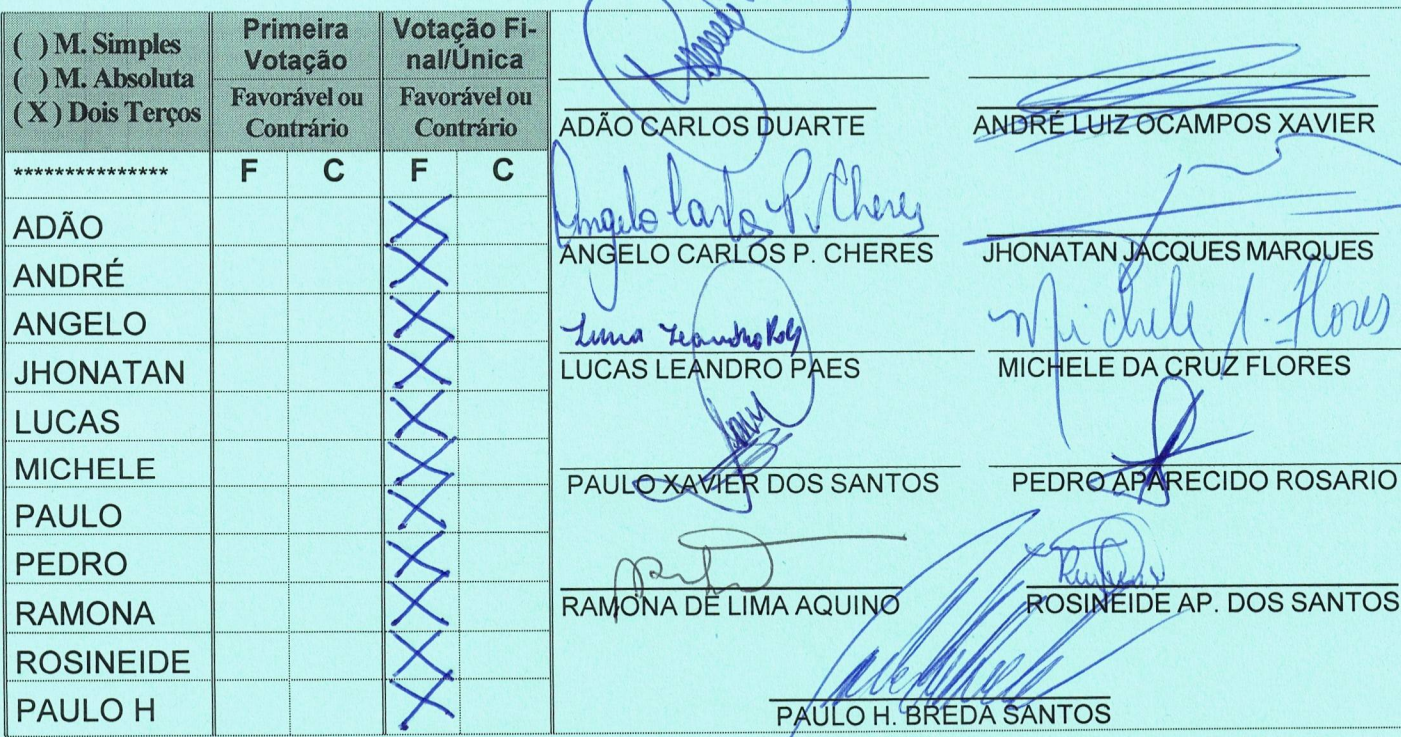 ( ) M. Simples
( ) M. Absoluta
( X ) Dois Terços
Primeira
Votação
Favorável ou
Contrário
Votação Fi-
nal/Única
Favorável ou
Contrário
*************** F C F C
ADÃO X
ANDRÉ X
ANGELO X
JHONATAN X
LUCAS X
MICHELE X
PAULO X
PEDRO X
RAMONA X
ROSINEIDE X
PAULO H X
ADÃO CARLOS DUARTE
ANDRÉ LUIZ OCAMPOS XAVIER
Angelo Carlos P. Cheres
ANGELO CARLOS P. CHERES
JHONATAN JACQUES MARQUES
Leandro
LUCAS LEANDRO PAES
Michele Flores
MICHELE DA CRUZ FLORES
PAULO XAVIER DOS SANTOS
PEDRO APARECIDO ROSARIO
RAMONA DE LIMA AQUINO
ROSINEIDE AP. DOS SANTOS
PAULO H. BREDA SANTOS